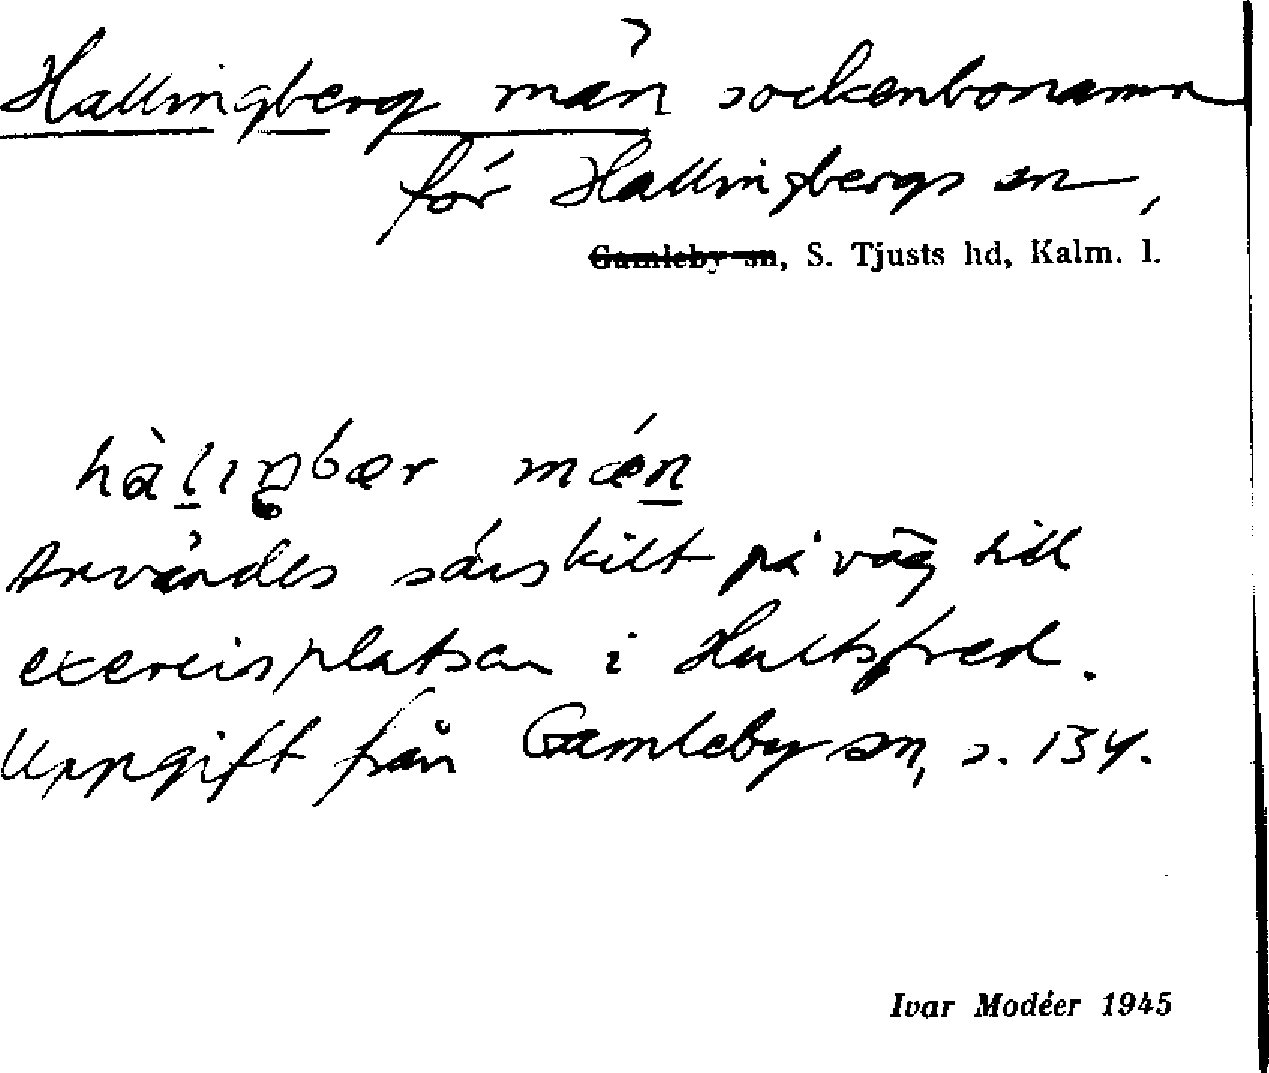 Hallingberg män sockenbonamn
för Hallingbergs sn,
Gamleby sn, S. Tjusts hd, Kalm. l.
hàlıŋbær mǽn
Användes särskilt på väg till
exercisplatsen i Hultsfred.
Uppgift från Gamleby sn, s. 134.
Ivar Modéer 1945